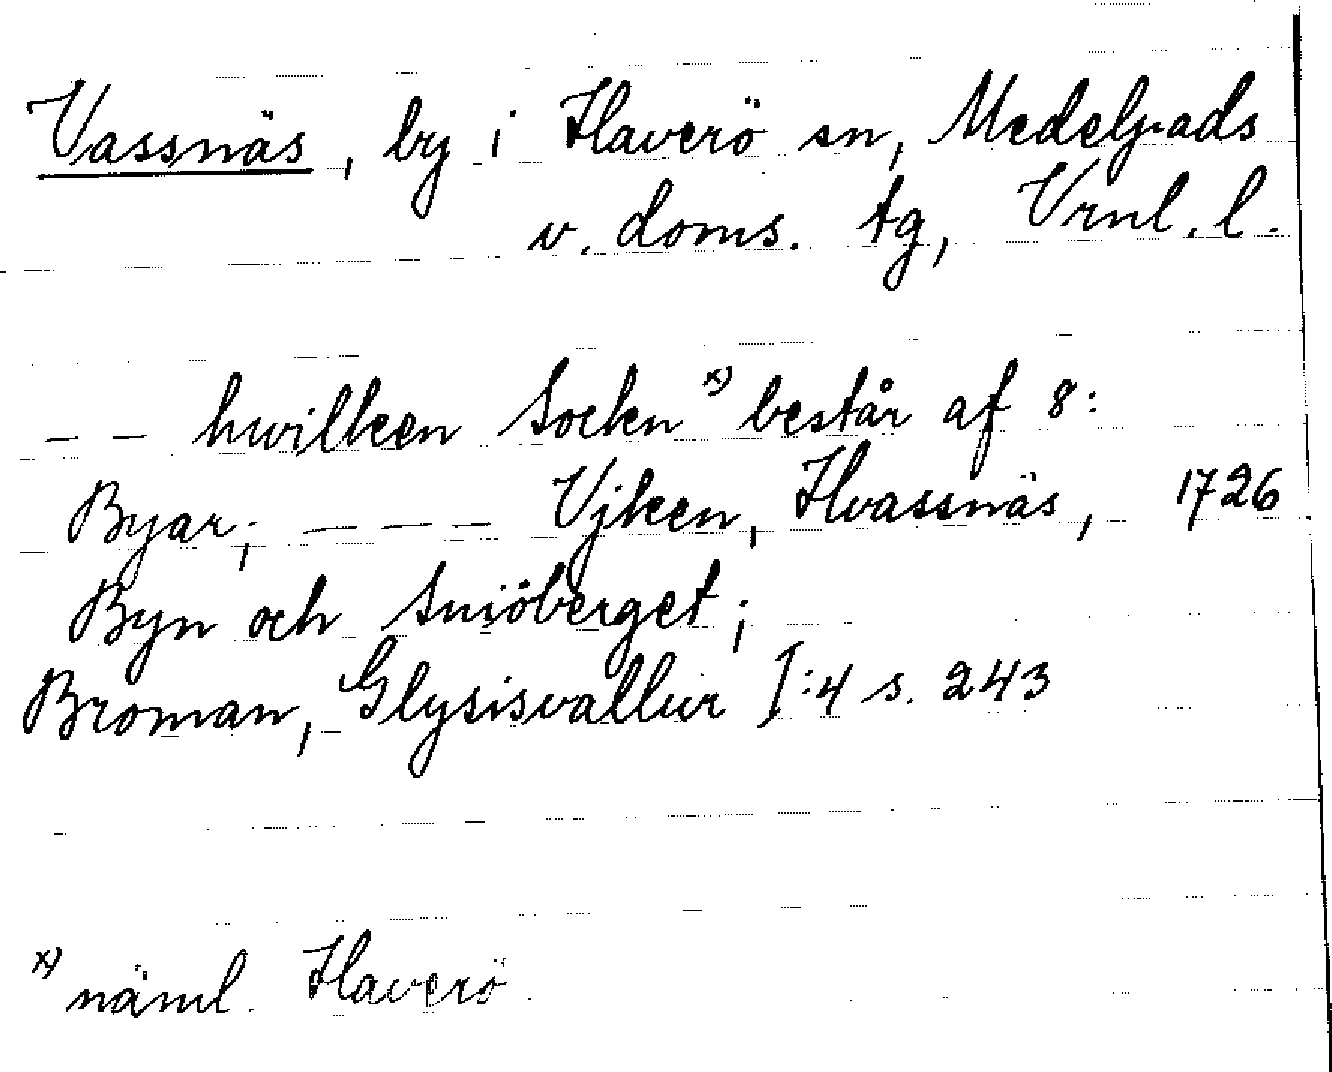 Vassnäs, by i Haverö sn, Medelpads
v. doms. tg, Vrnl. l.
– – hwilken Socken x) består af 8:
Byar; – – – Vjken, Hvassnäs, 1726
Byn och Sniöberget;
Broman, Glysisvallur I:4 s. 243
x) näml. Haverö